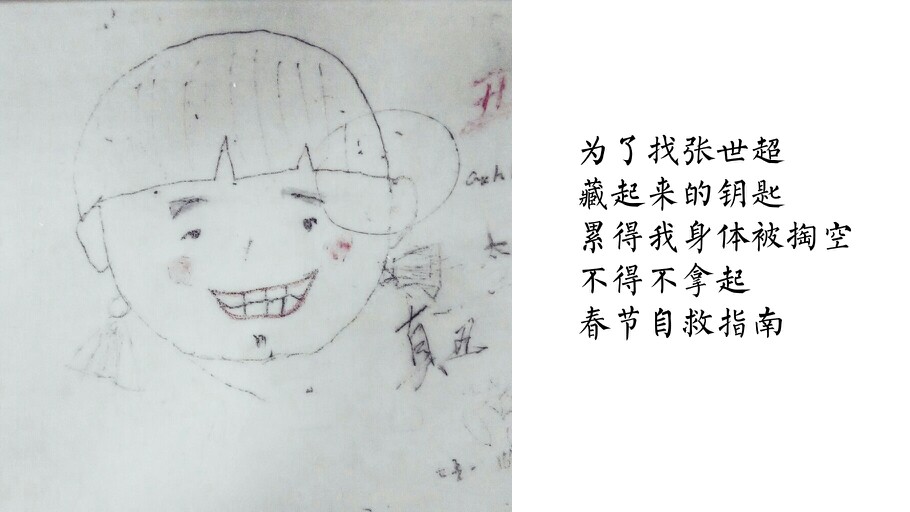 丑
真丑
为了找张世超
藏起来的钥匙
累得我身体被掏空
不得不拿起
春节自救指南